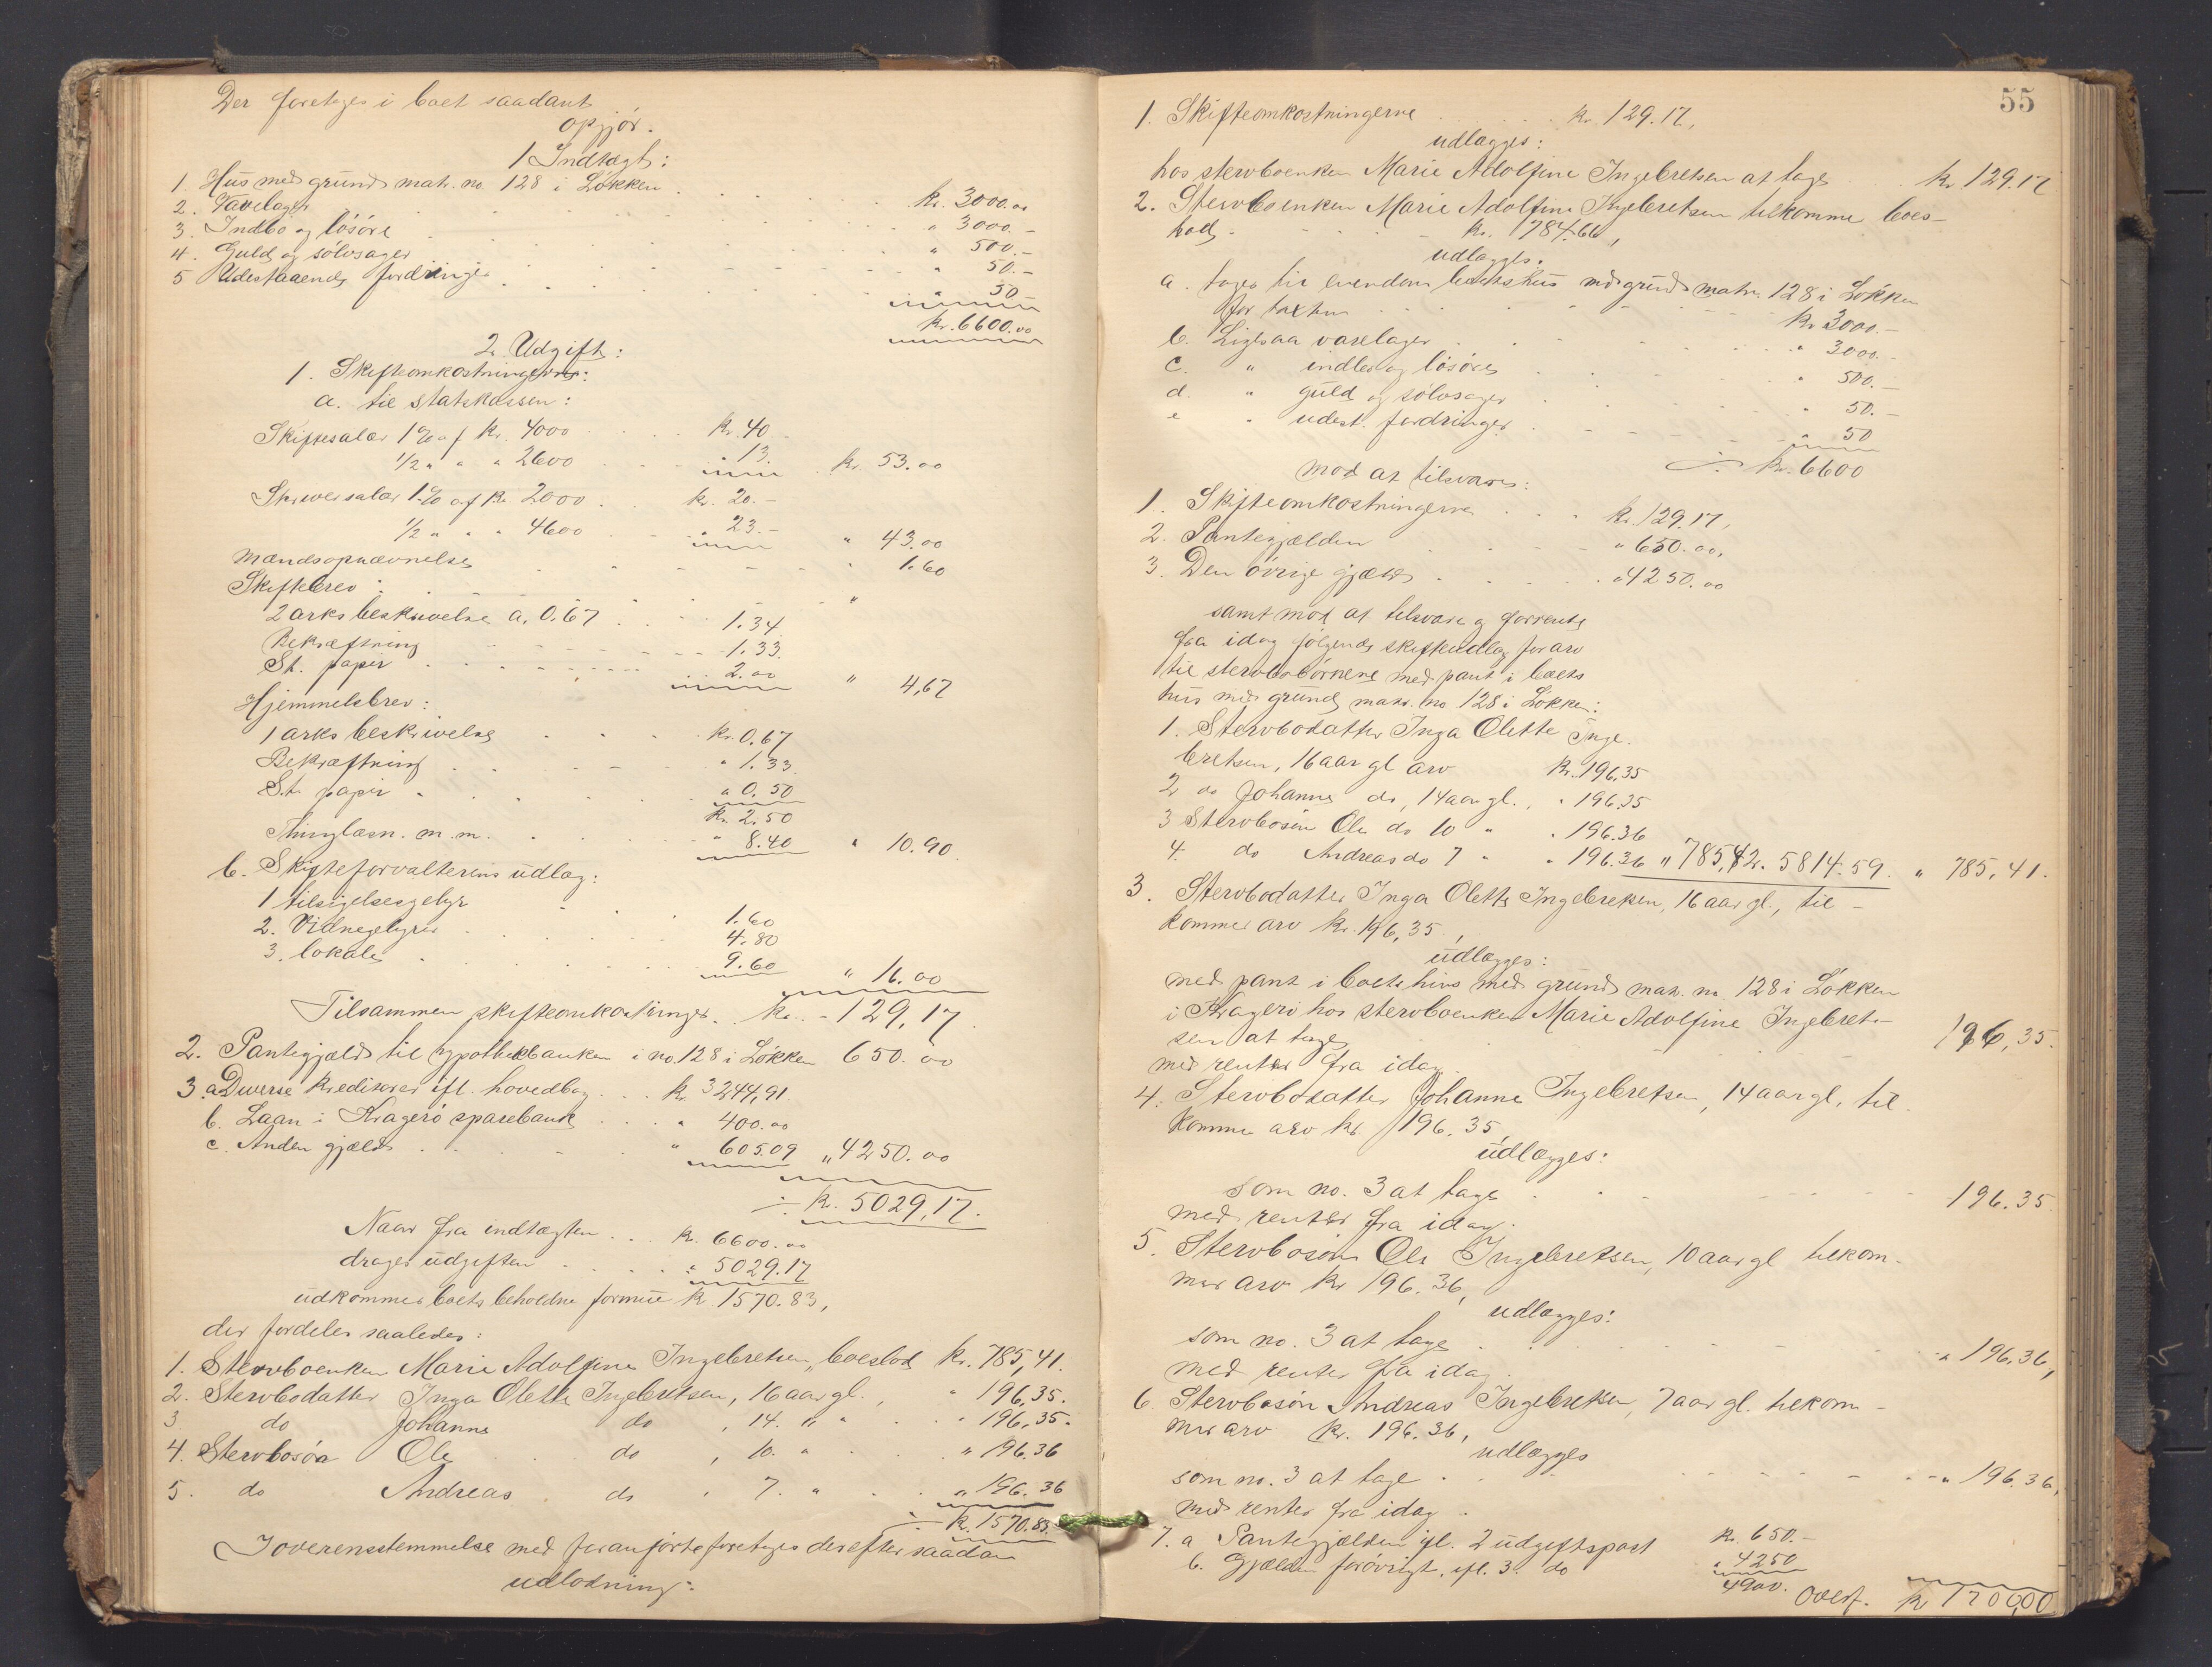 Der foretages i boet saadant
opgjør.
1 Indtægt:
1. Hus med grund matr. no. 128 i Løkken . . . kr. 3000.00
2. Varelager . . . " 3000.-
3. Indbo og løsøre . . . " 500.-
4. Guld og sølvsager . . . " 50.-
5 Udestaaende fordringer . . . " 50-
kr. 6600.00
2 Udgift:
1. Skifteomkostningerne:
a. til statskassen:
Skiftesalær 1% af kr. 4000 . . . kr. 40.-
1/2 " " " 2600 . . . " 13. kr. 53.00
Skriversalær 1% af kr 2000 . . kr. 20.-
1/2 " " " 4600 . . " 23.- " 43.00
Mændsopnævnelse . . . " 1.60
Skiftebrev: "
2 arks beskrivelse a, 0.67 . . . 1.34
Bekræftning . . . 1.33.
St. papir . . . 2.00 " 4,67
Hjemmelsbrev:
1 arks beskrivelse . . . kr. 0.67
Bekræftning . . . " 1.33.
St. papir . . . " 0.50
kr. 2.50
Thinglæsn. m. m. . . " 8.40 " 10.90.
b. Skifteforvalterens udlæg:
1 tilsigelsesgebyr . . . 1.60
2. Vidnegebyrer . . . 4.80
3. lokale . . . 9.60 " 16.00
Tilsammen skifteomkostninger. . kr. - 129,17.
2. Pantegjæld til hypothekbanken i no. 128 i Løkken 650.00
3. a Diverse kreditorer ifl. hovedbog . . . kr. 3244,91.
b. Laan i Kragerø sparebank . . . " 400.00
c. Anden gjæld . . . " 605.09 " 4250.00
÷ kr. 5029,17.
Naar fra indtægten . . . kr. 6600.00
drages udgiften . . . " 5029.17
udkommer boets beholdne formue kr 1570.83,
der fordeles saaledes:
1. Stervboenken Marie Adolfine Ingebretsen, boeslod kr. 785,41.
2. Stervbodatter Inga Olette Ingebretsen, 16 aar gl. , " 196,35.
3 do Johanne do , 14. " " . . " 196,35.
4. Stervbosøn Ole do , 10. " . . " 196.36
5. do Andreas do , 7. " . . " 196.36
÷ kr. 1570.83.
I overensstemmelse med foranførte foretages derefter saadan
udlodning:
55
1. Skifteomkostningerne . . . kr. 129.17,
udlægges:
hos stervboenken Marie Adolfine Ingebretsen at tage . . kr. 129.17
2. Stervboenken Marie Adolfine Ingebretsen tilkomme boes-
lod . . . kr. 784.66,
udlægges.
a. tages til eiendom boets hus med grund matr. 128 i Løkken
for taxten . . . kr 3000.-
b. Ligesaa varelager . . . " 3000.-
c. " indbo og løsøre . . . " 500.-
d. " guld og sølvsager . . . " 50.-
e " udest. fordringer . . . " 50
÷ kr. 6600
mod at tilsvare:
1. Skifteomkostningerne . . . kr. 129.17,
2. Pantegjælden . . . " 650.00,
3. Den øvrige gjæld . . . " 4250.00
samt mod at tilsvare og forrente
fra idag følgende skifteudlæg for arv
til stervbobørnene med pant i boets
hus med grund matr. no. 128 i Løkken:
1. Stervbodatter Inga Olette Inge-
bretsen, 16 aar gl arv kr. 196,35
2 do Johanne do, 14 aar gl. , " 196.35
3 Stervbosøn Ole do 10 " . 196.36
4. do Andreas do 7 " " 196.36 " 785,42. 5814.59. " 785,41.
3. Stervbodatter Inga Olette Ingebretsen, 16 aar gl., til-
kommer arv kr. 196,35,
udlægges:
med pant i boets hus med grund matr. no. 128 i Løkken
i Kragerø hos stervboenken Marie Adolfine Ingebret-
sen at tage . . . 196,35.
med renter fra idag.
4. Stervbodatter Johanne Ingebretsen, 14 aar gl. til-
komme arv kr 196.35,
udlægges:
som no. 3 at tage . . . 196.35.
med renter fra idag.
5. Stervbosøn Ole Ingebretsen, 10 aar gl tilkom-
mer arv kr 196.36,
udlægges:
som no. 3 at tage . . . " 196.36,
med renter fra idag.
6. Stervbosøn Andreas Ingebretsen, 7 aar gl. tilkom-
mer arv kr. 196.36,
udlægges
som no. 3 at tage . . . " 196.36,
med renter fra idag .
7. a Pantegjælden ifl. 2 udgiftspost kr. 650.-
b. Gjælden forøvrigt, ifl. 3. do " 4250
4900. Overf. kr 1700,00